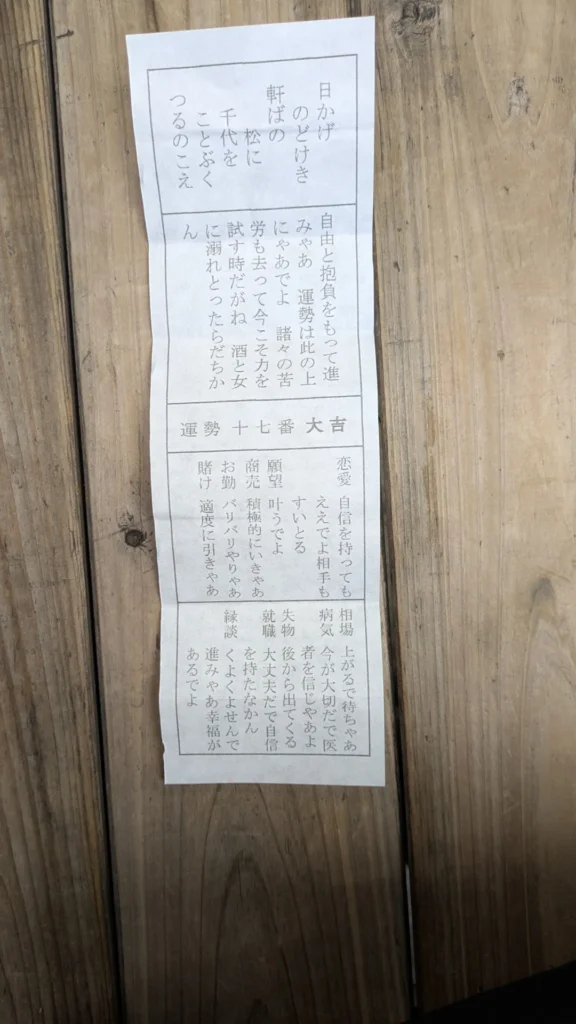 日かげ
のどけき
軒ばの
松に
千代を
ことぶく
つるのこえ
自由と抱負をもって進
みゃあ 運勢は此の上
にゃあでよ 諸々の苦
労も去って今こそ力を
試す時だがね 酒と女
に溺れとったらだちか
ん
運勢 十七番 大吉
恋愛 自信を持っても
ええでよ相手も
すいとる
願望 叶うでよ
商売 積極的にいきゃあ
お勤 バリバリやりゃあ
賭け 適度に引きゃあ
相場 上がるで待ちゃあ
病気 今が大切だで医
者を信じやあよ
失物 後から出てくる
就職 大丈夫だで自信
を持たなかん
縁談 くよくよせんで
進みゃあ幸福が
あるでよ